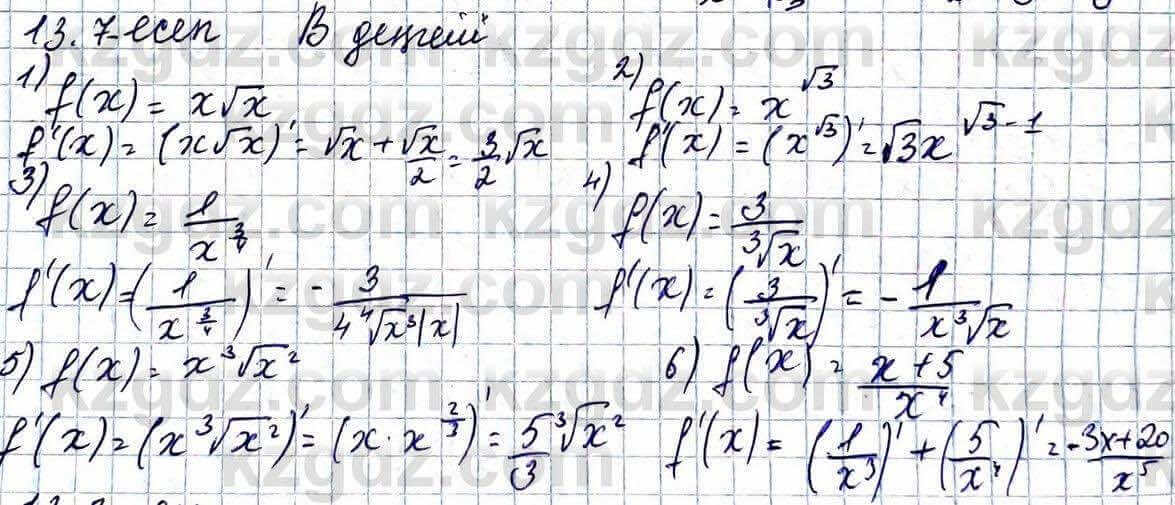 13.7-есеп В деңгей
1) f(x) = x√x
f'(x) = (x√x)' = √x + √x/2 = 3/2 √x
2) f(x) = x^√3
f'(x) = (x^√3)' = √3x^(√3-1)
3) f(x) = 1/x^(3/4)
f'(x) = (1/x^(3/4))' = -3/(4 ⁴√x³|x|)
4) f(x) = 3/³√x
f'(x) = (3/³√x)' = -1/(x ³√x)
5) f(x) = x ³√x²
f'(x) = (x ³√x²)' = (x · x^(2/3))' = 5/3 ³√x²
6) f(x) = (x+5)/x⁴
f'(x) = (1/x³)' + (5/x⁴)' = -(3x+20)/x⁵
kzgdz.com